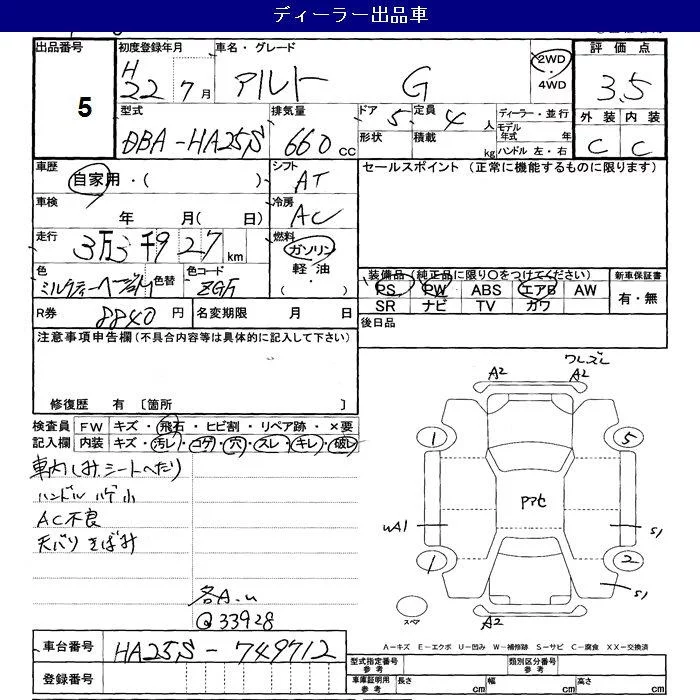 ディーラー出品車
出品番号 初度登録年月 車名・グレード 評価点
5 H22 7月 アルト G 2WD・4WD 3.5
型式 排気量 ドア 5 定員 4人 ディーラー・並行 外装 内装
DBA-HA25S 660cc 形状 積載 kg モデル年式 年 ハンドル 左・右 C C
車歴 シフト セールスポイント (正常に機能するものに限ります)
自家用・( ) AT
車検 冷房
年 月( 日) AC
走行 燃料
3万3千927km ガソリン
色 色替 色コード 軽油 装備品(純正品に限り○をつけてください) 新車保証書
ミルクティーベージュM ZGF ・( ) PS PW ABS エアB AW 有・無
R券 8840円 名変期限 月 日 SR ナビ TV カワ
注意事項申告欄(不具合内容等は具体的に記入して下さい) 後日品
ワレ、ズレ
A2 A2
修復歴 有〔箇所 〕
検査員 FW キズ・飛石・ヒビ割・リペア跡・×要
記入欄 内装 キズ・汚レ・コゲ・穴・スレ・キレ・破レ
1 5
車内しみ、シートへたり
ハンドルハゲ小
AC不良
天バリきばみ
アアセ
UA1 S1
1 2
S1
各A.U
@33928
スペア A2
A－キズ E－エクボ U－凹み W－補修跡 S－サビ C－腐食 XX－交換済
車台番号 HA25S-749712 型式指定番号 参考 類別区分番号 参考
登録番号 車庫証明用 参考 長さ cm 幅 cm 高さ cm